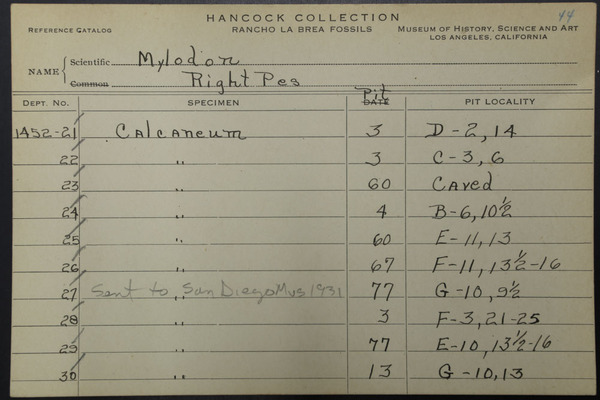 HANCOCK COLLECTION 44
REFERENCE CATALOG RANCHO LA BREA FOSSILS MUSEUM OF HISTORY, SCIENCE AND ART
LOS ANGELES, CALIFORNIA
NAME Scientific Mylodon
Common Right Pes
DEPT. NO. SPECIMEN DATE Pit PIT LOCALITY
1452-21 Calcaneum 3 D-2, 14
22 " 3 C-3, 6
23 " 60 Caved
24 " 4 B-6, 10½
25 " 60 E-11, 13
26 " 67 F-11, 13½-16
27 Sent to San Diego Mus 1931 " 77 G-10, 9½
28 " 3 F-3, 21-25
29 " 77 E-10, 13½-16
30 " 13 G-10, 13